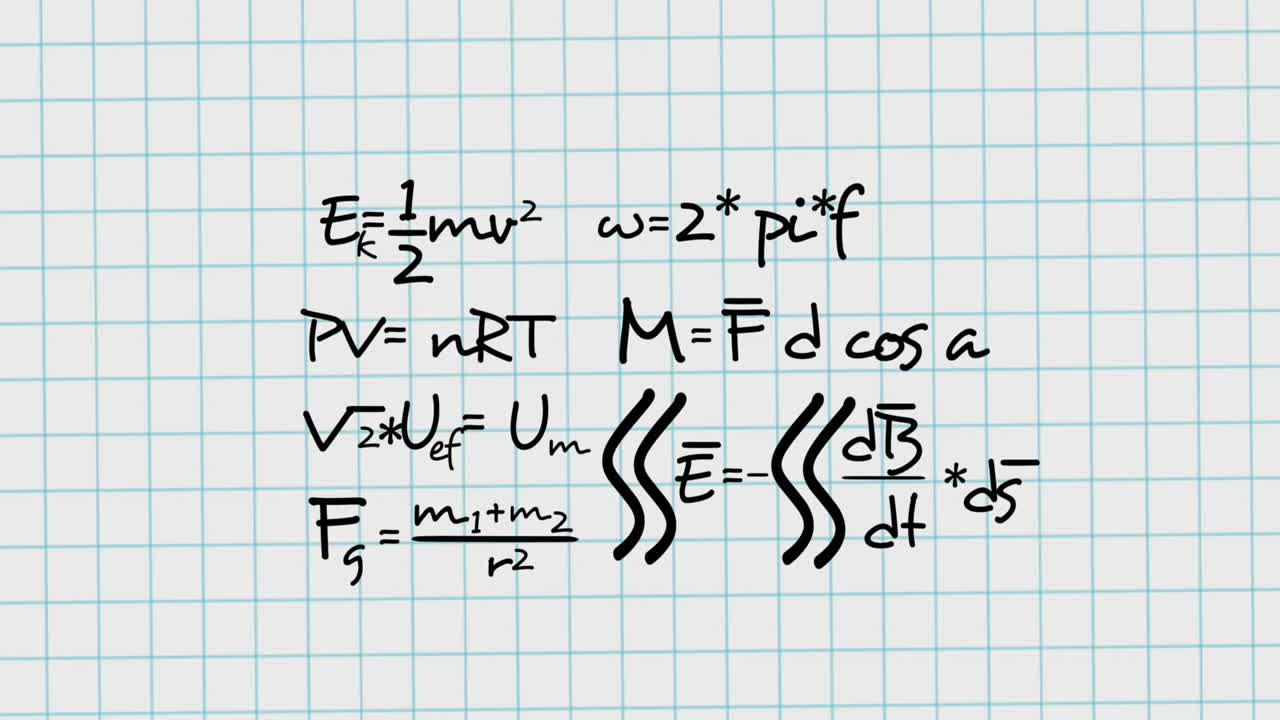 E_k = 1/2 mv² ω=2*pi*f
PV= nRT M=F̅ d cos a
√2*U_ef= U_m ∫∫E̅=-∫∫ dB̅/dt *ds̅
F̅_g = m₁+m₂/r²